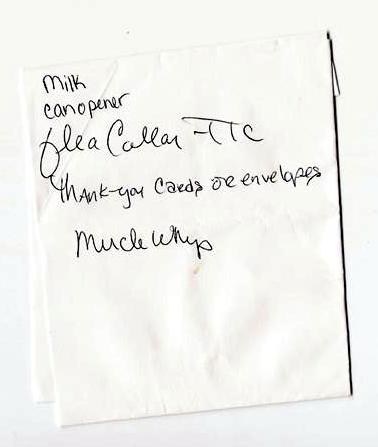 Milk
can opener
flea Collar - TTC
Thank-you Cards or envelopes
Mircle Whip